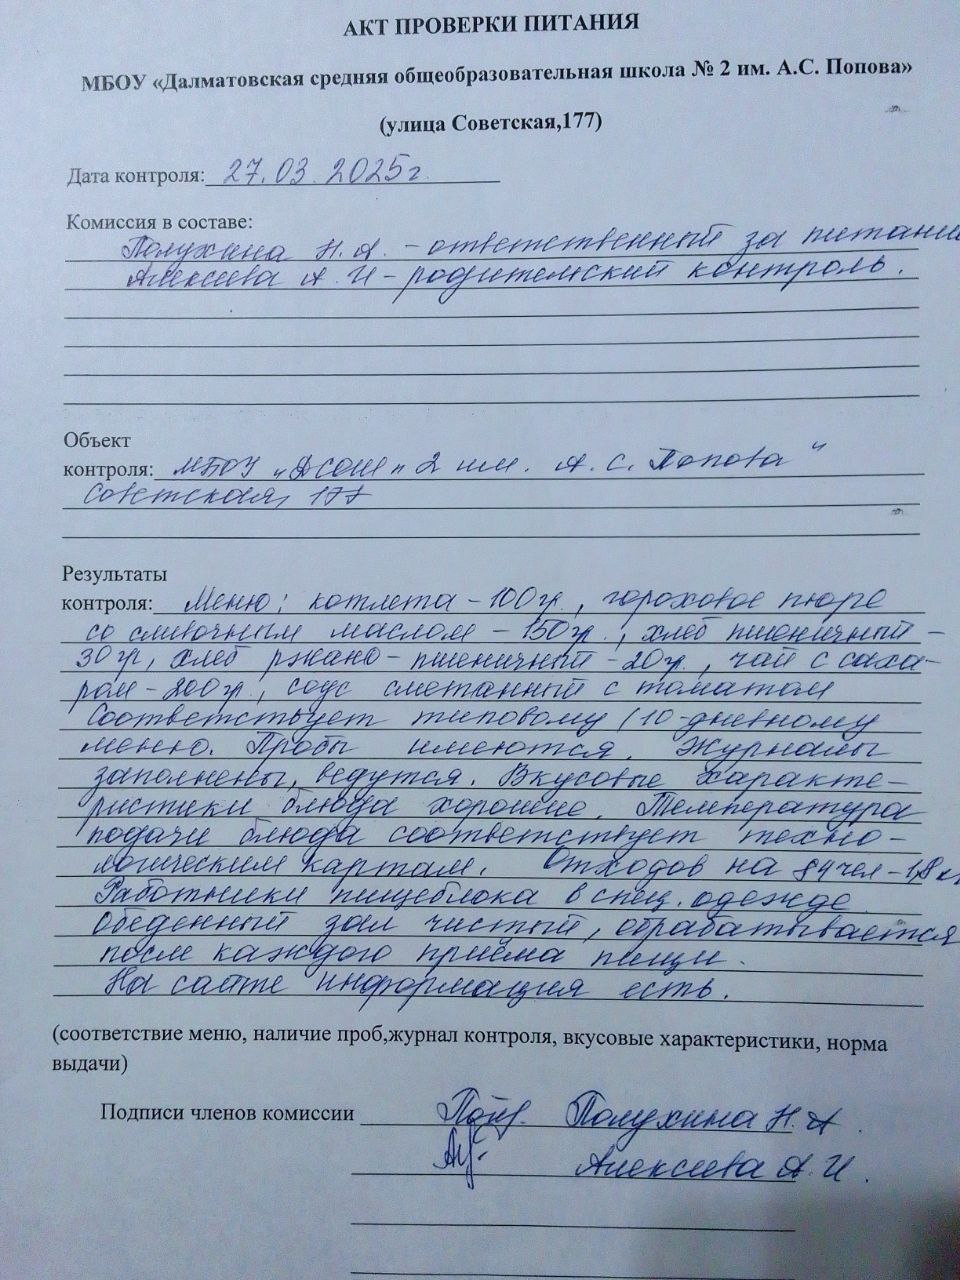 АКТ ПРОВЕРКИ ПИТАНИЯ
МБОУ «Далматовская средняя общеобразовательная школа № 2 им. А.С. Попова»
(улица Советская,177)
Дата контроля: 27.03.2025г.
Комиссия в составе:
Полухина Н.А. - ответственный за питание
Алексеева А.И - родительский контроль.
Объект
контроля: МБОУ „ДСОШ" 2 им. А.С. Попова"
Советская, 177
Результаты
контроля: Меню: котлета - 100гр., гороховое пюре
со сливочным маслом - 150гр., хлеб пшеничный -
30гр, хлеб ржано - пшеничный - 20гр., чай с саха-
ром - 200гр., соус сметанный с томатом
Соответствует типовому (10-дневному
меню. Пробы имеются. Журналы
заполнены, ведутся. Вкусовые характе-
ристики блюда хорошие. Температура
подачи блюда соответствует техно-
логическим картам. Отходов на 84чел - 1,8 кг
Работники пищеблока в спец. одежде.
Обеденный зал чистый, обрабатывается
после каждого приёма пищи.
На сайте информация есть.
(соответствие меню, наличие проб,журнал контроля, вкусовые характеристики, норма
выдачи)
Подписи членов комиссии Полухина Н.А.
Алексеева А.И.